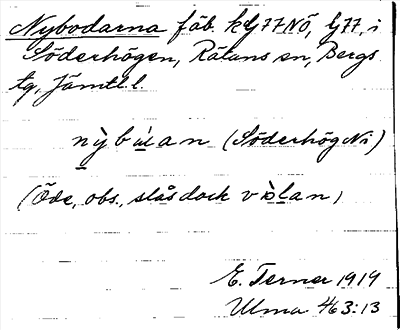 Nybodarna fäb. kLj77NÖ, Lj77, i
Söderhögen, Rätans sn, Bergs
tg, Jämtl. l.
nỳbu̇̀an (Söderhög Nö)
(Öde, obs., slås dock
E. Ternér 1919
Ulma 463:13